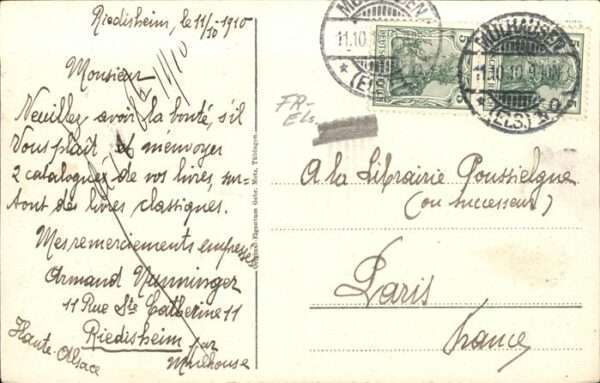 Riedisheim, le 11/10-1910
Monsieur
Veuillez avoir la bonté, s'il
Vous plait et m'envoyer
2 catalogues de vos livres, sur=
tout des livres classiques.
Mes remerciements empressés
Armand Nunninger
11 Rue Ste Catherine 11
Riedisheim par
Mulhouse
Haute-Alsace
MÜLHAUSEN
11.10.
(ELS)
MÜLHAUSEN
11.10.10.9-10N.
(ELS)
5
5
FR-
Els.
A la Librairie Poussielgue
(ou successeur)
Paris
France